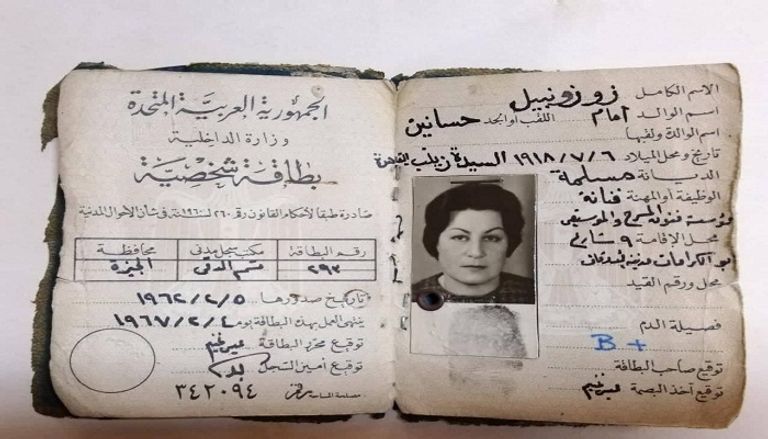 الجمهورية العربية المتحدة
وزارة الداخلية
بطاقة شخصية
صادرة طبقا لأحكام القانون رقم ٢٦٠ لسنة ١٩٦٠ في شأن الأحوال المدنية
رقم البطاقة مكتب سجل مدني محافظة
٢٩٣ قسم الدقى الجيزة
تاريخ صدورها ١٩٦٢/٢/٥
ينتهى العمل بهذه البطاقة يوم ١٩٦٧/٢/٤
توقيع محرر البطاقة
توقيع أمين السجل
مصلحة المساحة ٣٤٢٠٩٤
الاسم الكامل زوزو نبيل
اسم الوالد امام اللقب أو الجد حسانين
اسم الوالدة ولقبها
تاريخ ومحل الميلاد ١٩١٨/٧/٦ السيدة زينب بالقاهرة
الديانة مسلمة
الوظيفة أو المهنة فنانة
مؤسسة فنون المسرح والموسيقى
محل الإقامة ٩ شارع
أبو الكرامات مدينة
محل ورقم القيد
فصيلة الدم
B+
توقيع صاحب البطاقة
توقيع آخذ البصمة